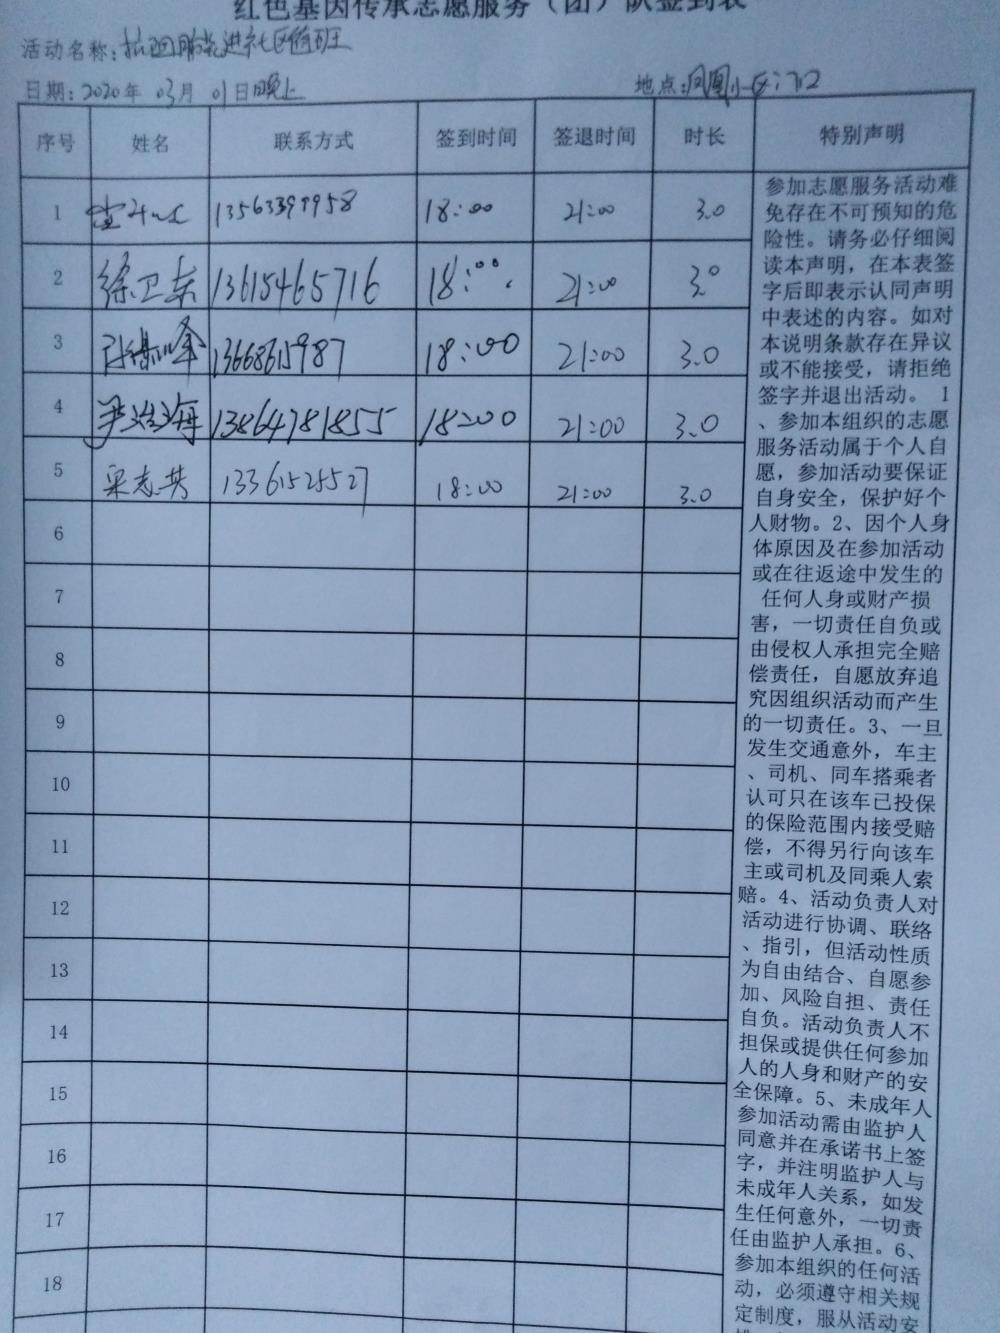 红色基因传承志愿服务（团）队签到表
活动名称: 进社区值班
日期: 2020年 03月 01日晚上 地点: 凤凰小区门口
序号 姓名 联系方式 签到时间 签退时间 时长 特别声明
1 13563399958 18:00 21:00 3.0
2 徐卫东 13615465716 18:00 21:00 3.0
3 13668615987 18:00 21:00 3.0
4 尹海 13864781855 18:00 21:00 3.0
5 梁志共 13361525527 18:00 21:00 3.0
6
7
8
9
10
11
12
13
14
15
16
17
18
参加志愿服务活动难
免存在不可预知的危
险性。请务必仔细阅
读本声明，在本表签
字后即表示认同声明
中表述的内容。如对
本说明条款存在异议
或不能接受，请拒绝
签字并退出活动。 1
、参加本组织的志愿
服务活动属于个人自
愿，参加活动要保证
自身安全，保护好个
人财物。2、因个人身
体原因及在参加活动
或在往返途中发生的
任何人身或财产损
害，一切责任自负或
由侵权人承担完全赔
偿责任，自愿放弃追
究因组织活动而产生
的一切责任。3、一旦
发生交通意外，车主
、司机、同车搭乘者
认可只在该车已投保
的保险范围内接受赔
偿，不得另行向该车
主或司机及同乘人索
赔。4、活动负责人对
活动进行协调、联络
、指引，但活动性质
为自由结合、自愿参
加、风险自担、责任
自负。活动负责人不
担保或提供任何参加
人的人身和财产的安
全保障。5、未成年人
参加活动需由监护人
同意并在承诺书上签
字，并注明监护人与
未成年人关系，如发
生任何意外，一切责
任由监护人承担。6、
参加本组织的任何活
动，必须遵守相关规
定制度，服从活动安